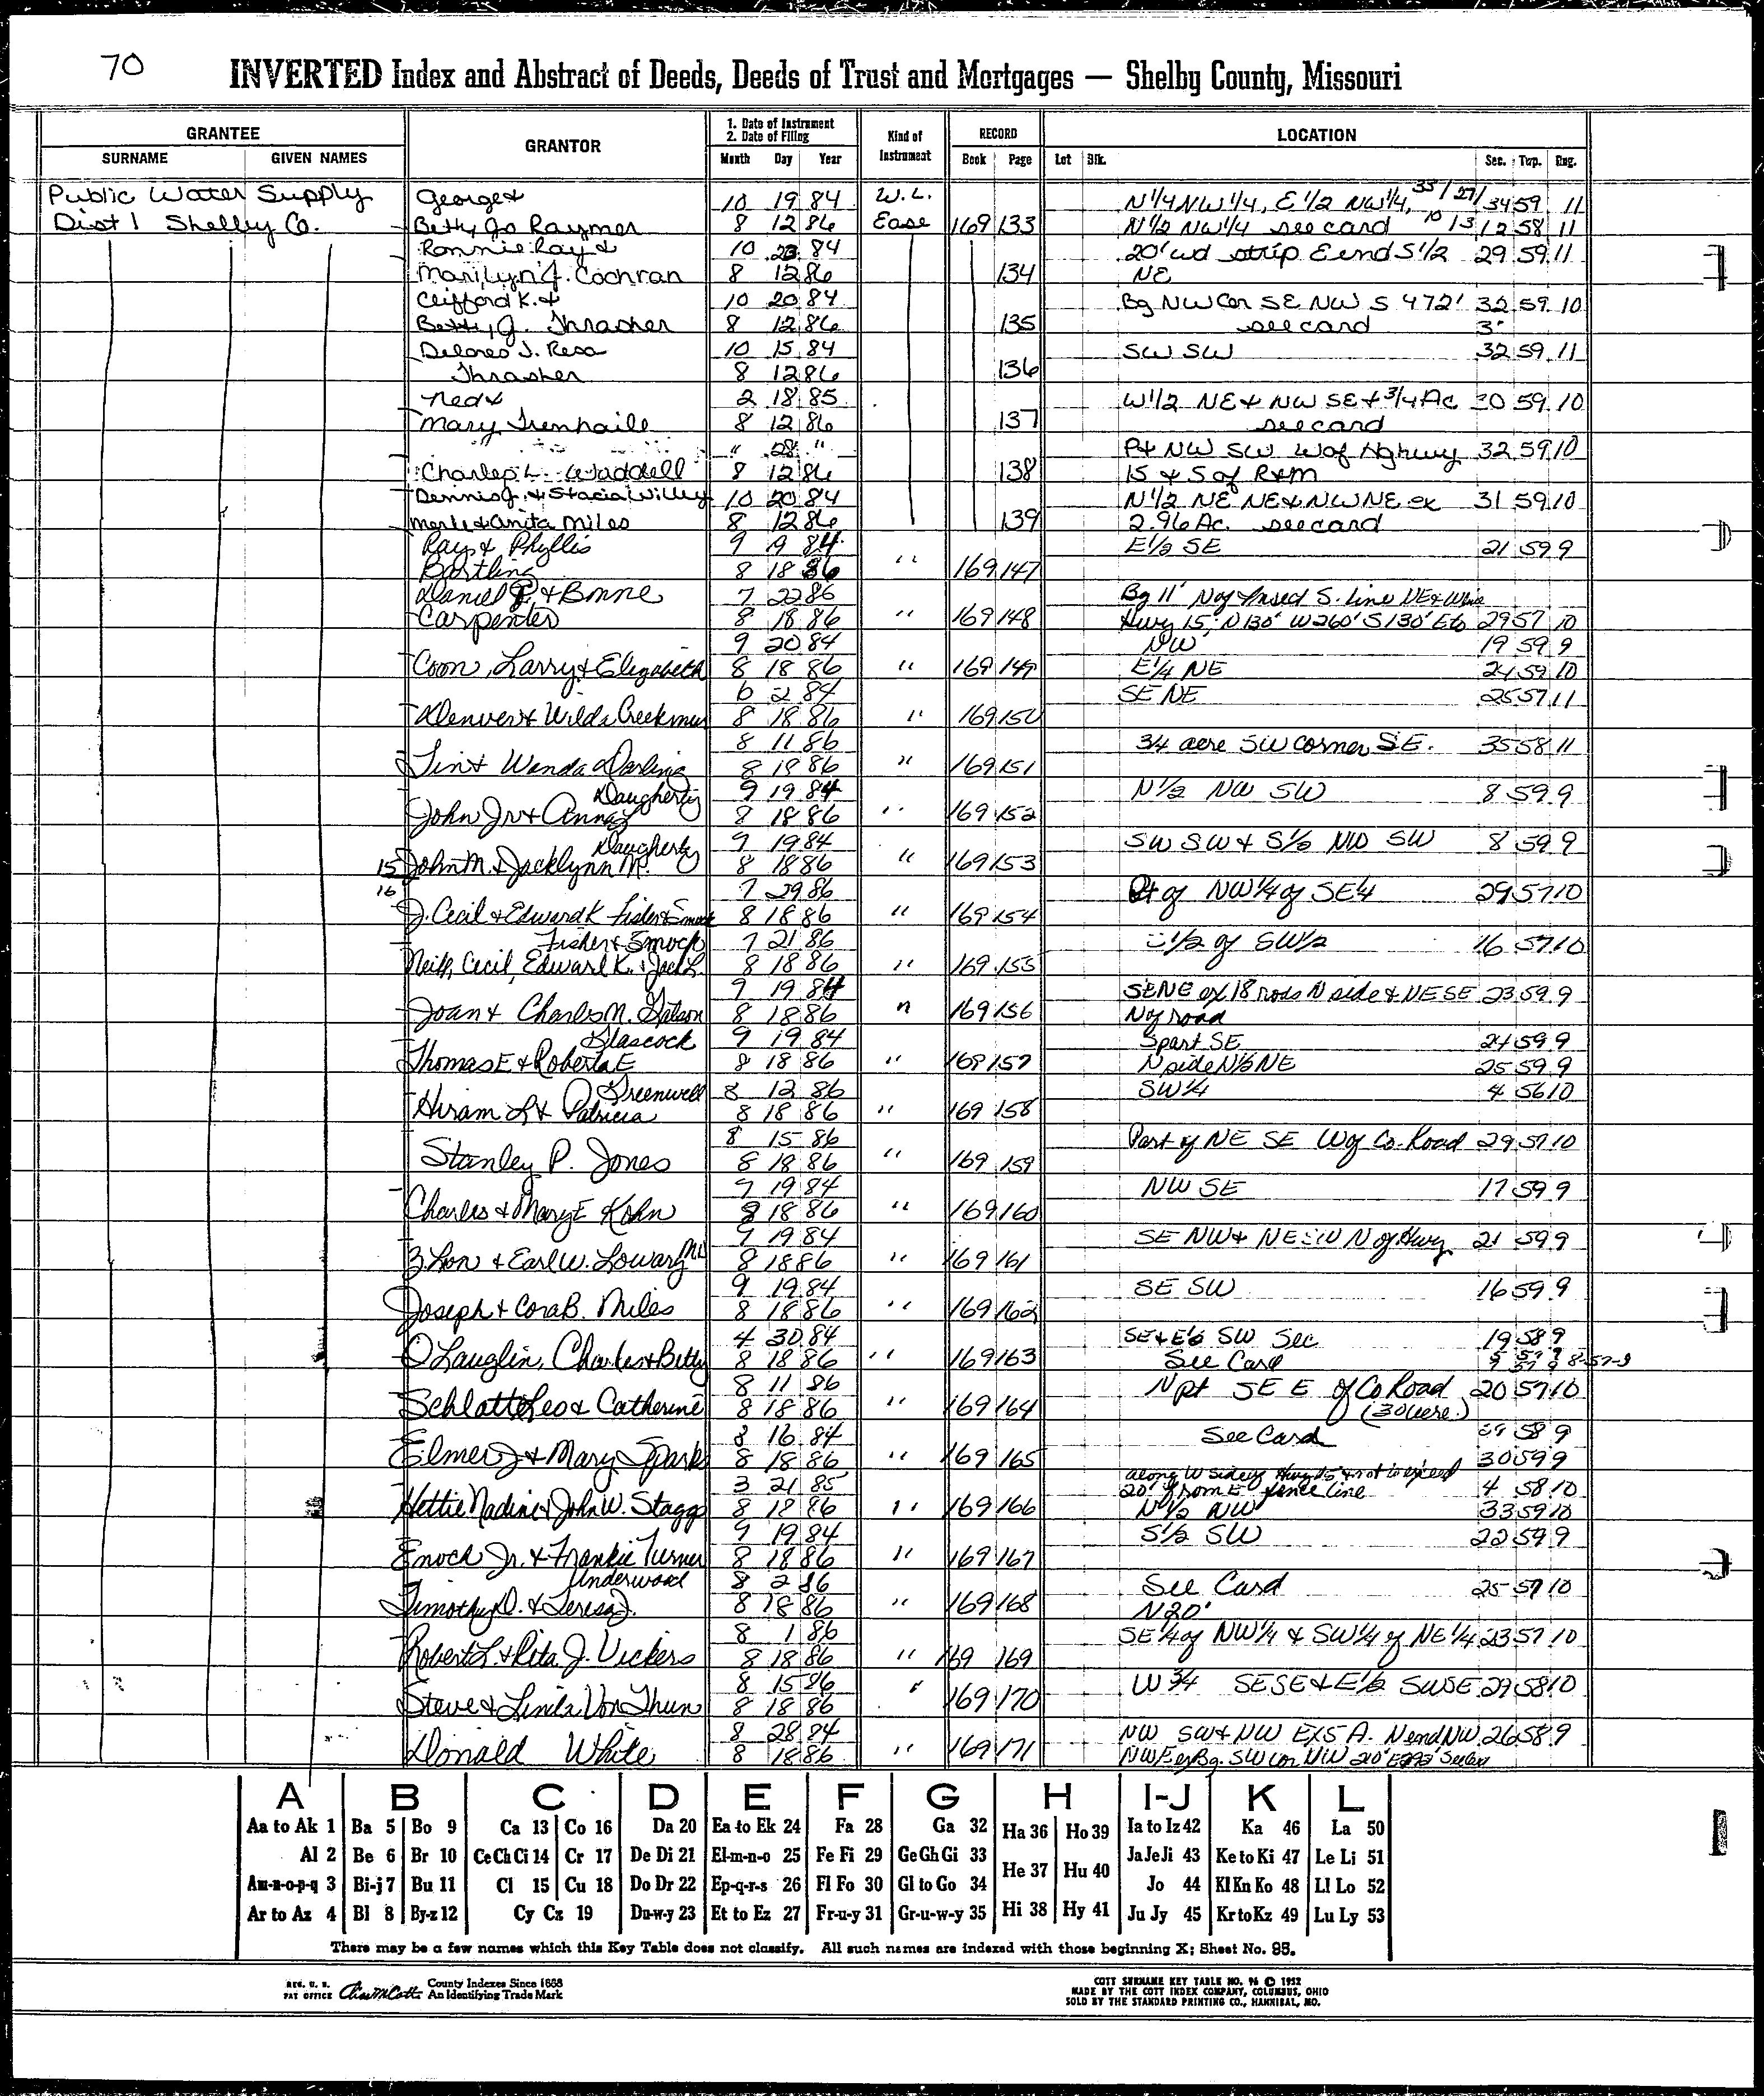 70
INVERTED Index and Abstract of Deeds, Deeds of Trust and Mortgages — Shelby County, Missouri
GRANTEE
SURNAME GIVEN NAMES
GRANTOR
1. Date of Instrument
2. Date of Filing
Month Day Year
Kind of Instrument
RECORD
Book Page
LOCATION
Lot Blk. Sec. Twp. Rng.
Public Water Supply George & 10 19 84 W.L. N 1/4 NW 1/4, E 1/2 NW 1/4, 34 59 11
Dist 1 Shelby Co. Betty Jo Raymer 8 12 86 Ease 169 133 N 1/2 NW 1/4 see card 12 58 11
Ronnie Ray & 10 23 84 20' wd strip E end S 1/2 29 59 11
Marilyn J. Cochran 8 12 86 134 NE
Clifford K. & 10 20 84 Bg NW Cor SE NW S 472' 32 59 10
Betty J. Thrasher 8 12 86 135 see card
Delores J. Resa 10 15 84 SW SW 32 59 11
Thrasher 8 12 86 136
Ned & 2 18 85 W 1/2 NE & NW SE & 3/4 Ac 30 59 10
Mary Trenhaile 8 12 86 137 see card
" 28 " Pt NW SW W of Hghwy 32 59 10
Charles L. Waddell 8 12 86 138 15 & S of R&M
Dennis J. & Stacia Willey 10 20 84 N 1/2 NE NE & NW NE ex 31 59 10
Merle & Anita Miles 8 12 86 139 2.96 Ac. see card
Ray & Phyllis 9 19 84 E 1/2 SE 21 59 9
Bartling 8 18 86 " 169 147
Daniel P. & Bonne 7 22 86 Bg 11' N of S. line NE &
Carpenter 8 18 86 " 169 148 Hwy 15, N 130' W 260' S 130' E to 29 57 10
9 20 84 NW 19 59 9
Coon, Larry & Elizabeth 8 18 86 " 169 149 E 1/4 NE 24 59 10
6 2 84 SE NE 25 57 11
Denver & Wilda Creekmur 8 18 86 " 169 150
8 11 86 3/4 acre SW corner SE. 35 58 11
Tim & Wanda Darling 8 18 86 " 169 151
Daugherty 9 19 84 N 1/2 NW SW 8 59 9
John Jr & Anna 8 18 86 " 169 152
Daugherty 9 19 84 SW SW & S 1/2 NW SW 8 59 9
15 John M. & Jacklynn M. 8 18 86 " 169 153
16 7 29 86 Pt of NW 1/4 of SE 1/4 29 57 10
J. Cecil & Edward K Fisher & Smock 8 18 86 " 169 154
Fisher & Smock 7 21 86 1/2 of SW 1/2 16 57 10
Neill, Cecil, Edward K. & Jack L. 8 18 86 " 169 155
9 19 84 SE NE ex 18 rods N side & NE SE 23 59 9
Joan & Charles N. Gatson 8 18 86 " 169 156 N of road
Glascock 9 19 84 S part SE 24 59 9
Thomas E & Roberta E 8 18 86 " 169 157 N side N 1/2 NE 25 59 9
Greenwell 8 12 86 SW 1/4 4 56 10
Hiram L & Patricia 8 18 86 " 169 158
8 15 86 Part of NE SE W of Co. Road 29 57 10
Stanley P. Jones 8 18 86 " 169 159
9 19 84 NW SE 17 59 9
Charles & Mary E Kohn 8 18 86 " 169 160
9 19 84 SE NW & NE SW N of Hwy 21 59 9
Z. Lon & Earl W. Lowary MD 8 18 86 " 169 161
9 19 84 SE SW 16 59 9
Joseph & Cora B. Miles 8 18 86 " 169 162
4 30 84 SE & E 1/2 SW Sec 19 58 9
O'Lauglin, Charles & Betty 8 18 86 " 169 163 See Card 8-57-9
8 11 86 N pt SE E of Co Road 20 57 10
Schlatt Leo & Catherine 8 18 86 " 169 164 (30 acre.)
8 16 84 See Card 29 58 9
Elmer J & Mary Spark 8 18 86 " 169 165 30 59 9
3 21 85 along W side of Hwy 15 & not to exceed 20' from E fence line 4 58 10
Hettie Nadine & John W. Staggs 8 18 86 " 169 166 N 1/2 NW 33 59 10
9 19 84 S 1/2 SW 22 59 9
Enoch Jr. & Frankie Turner 8 18 86 " 169 167
Underwood 8 2 86 See Card 25 57 10
Timothy D. & Teresa J. 8 18 86 " 169 168 N 20'
8 1 86 SE 1/4 of NW 1/4 & SW 1/4 of NE 1/4 23 57 10
Robert L. & Rita J. Vickers 8 18 86 " 169 169
8 15 86 W 3/4 SE SE & E 1/2 SW SE 29 58 10
Steve & Linda Von Thun 8 18 86 " 169 170
8 28 84 NW SW & NW EX 5 A. N end NW 26 58 9
Donald White 8 18 86 " 169 171 SW cor NW 210'
A B C D E F G H I-J K L
Aa to Ak 1 Ba 5 Bo 9 Ca 13 Co 16 Da 20 Ea to Ek 24 Fa 28 Ga 32 Ha 36 Ho 39 Ia to Iz 42 Ka 46 La 50
Al 2 Be 6 Br 10 Ce Ch Ci 14 Cr 17 De Di 21 El-m-n-o 25 Fe Fi 29 Ge Gh Gi 33 He 37 Hu 40 Ja Je Ji 43 Ke to Ki 47 Le Li 51
Am-n-o-p-q 3 Bi-j 7 Bu 11 Cl 15 Cu 18 Do Dr 22 Ep-q-r-s 26 Fl Fo 30 Gl to Go 34 Jo 44 Kl Kn Ko 48 Ll Lo 52
Ar to Az 4 Bl 8 By-z 12 Cy Cz 19 Du-w-y 23 Et to Ez 27 Fr-u-y 31 Gr-u-w-y 35 Hi 38 Hy 41 Ju Jy 45 Kr to Kz 49 Lu Ly 53
There may be a few names which this Key Table does not classify. All such names are indexed with those beginning X; Sheet No. 95.
REG. U. S. PAT OFFICE
County Indexes Since 1888
An Identifying Trade Mark
COTT SURNAME KEY TABLE NO. 96 © 1952
MADE BY THE COTT INDEX COMPANY, COLUMBUS, OHIO
SOLD BY THE STANDARD PRINTING CO., HANNIBAL, MO.